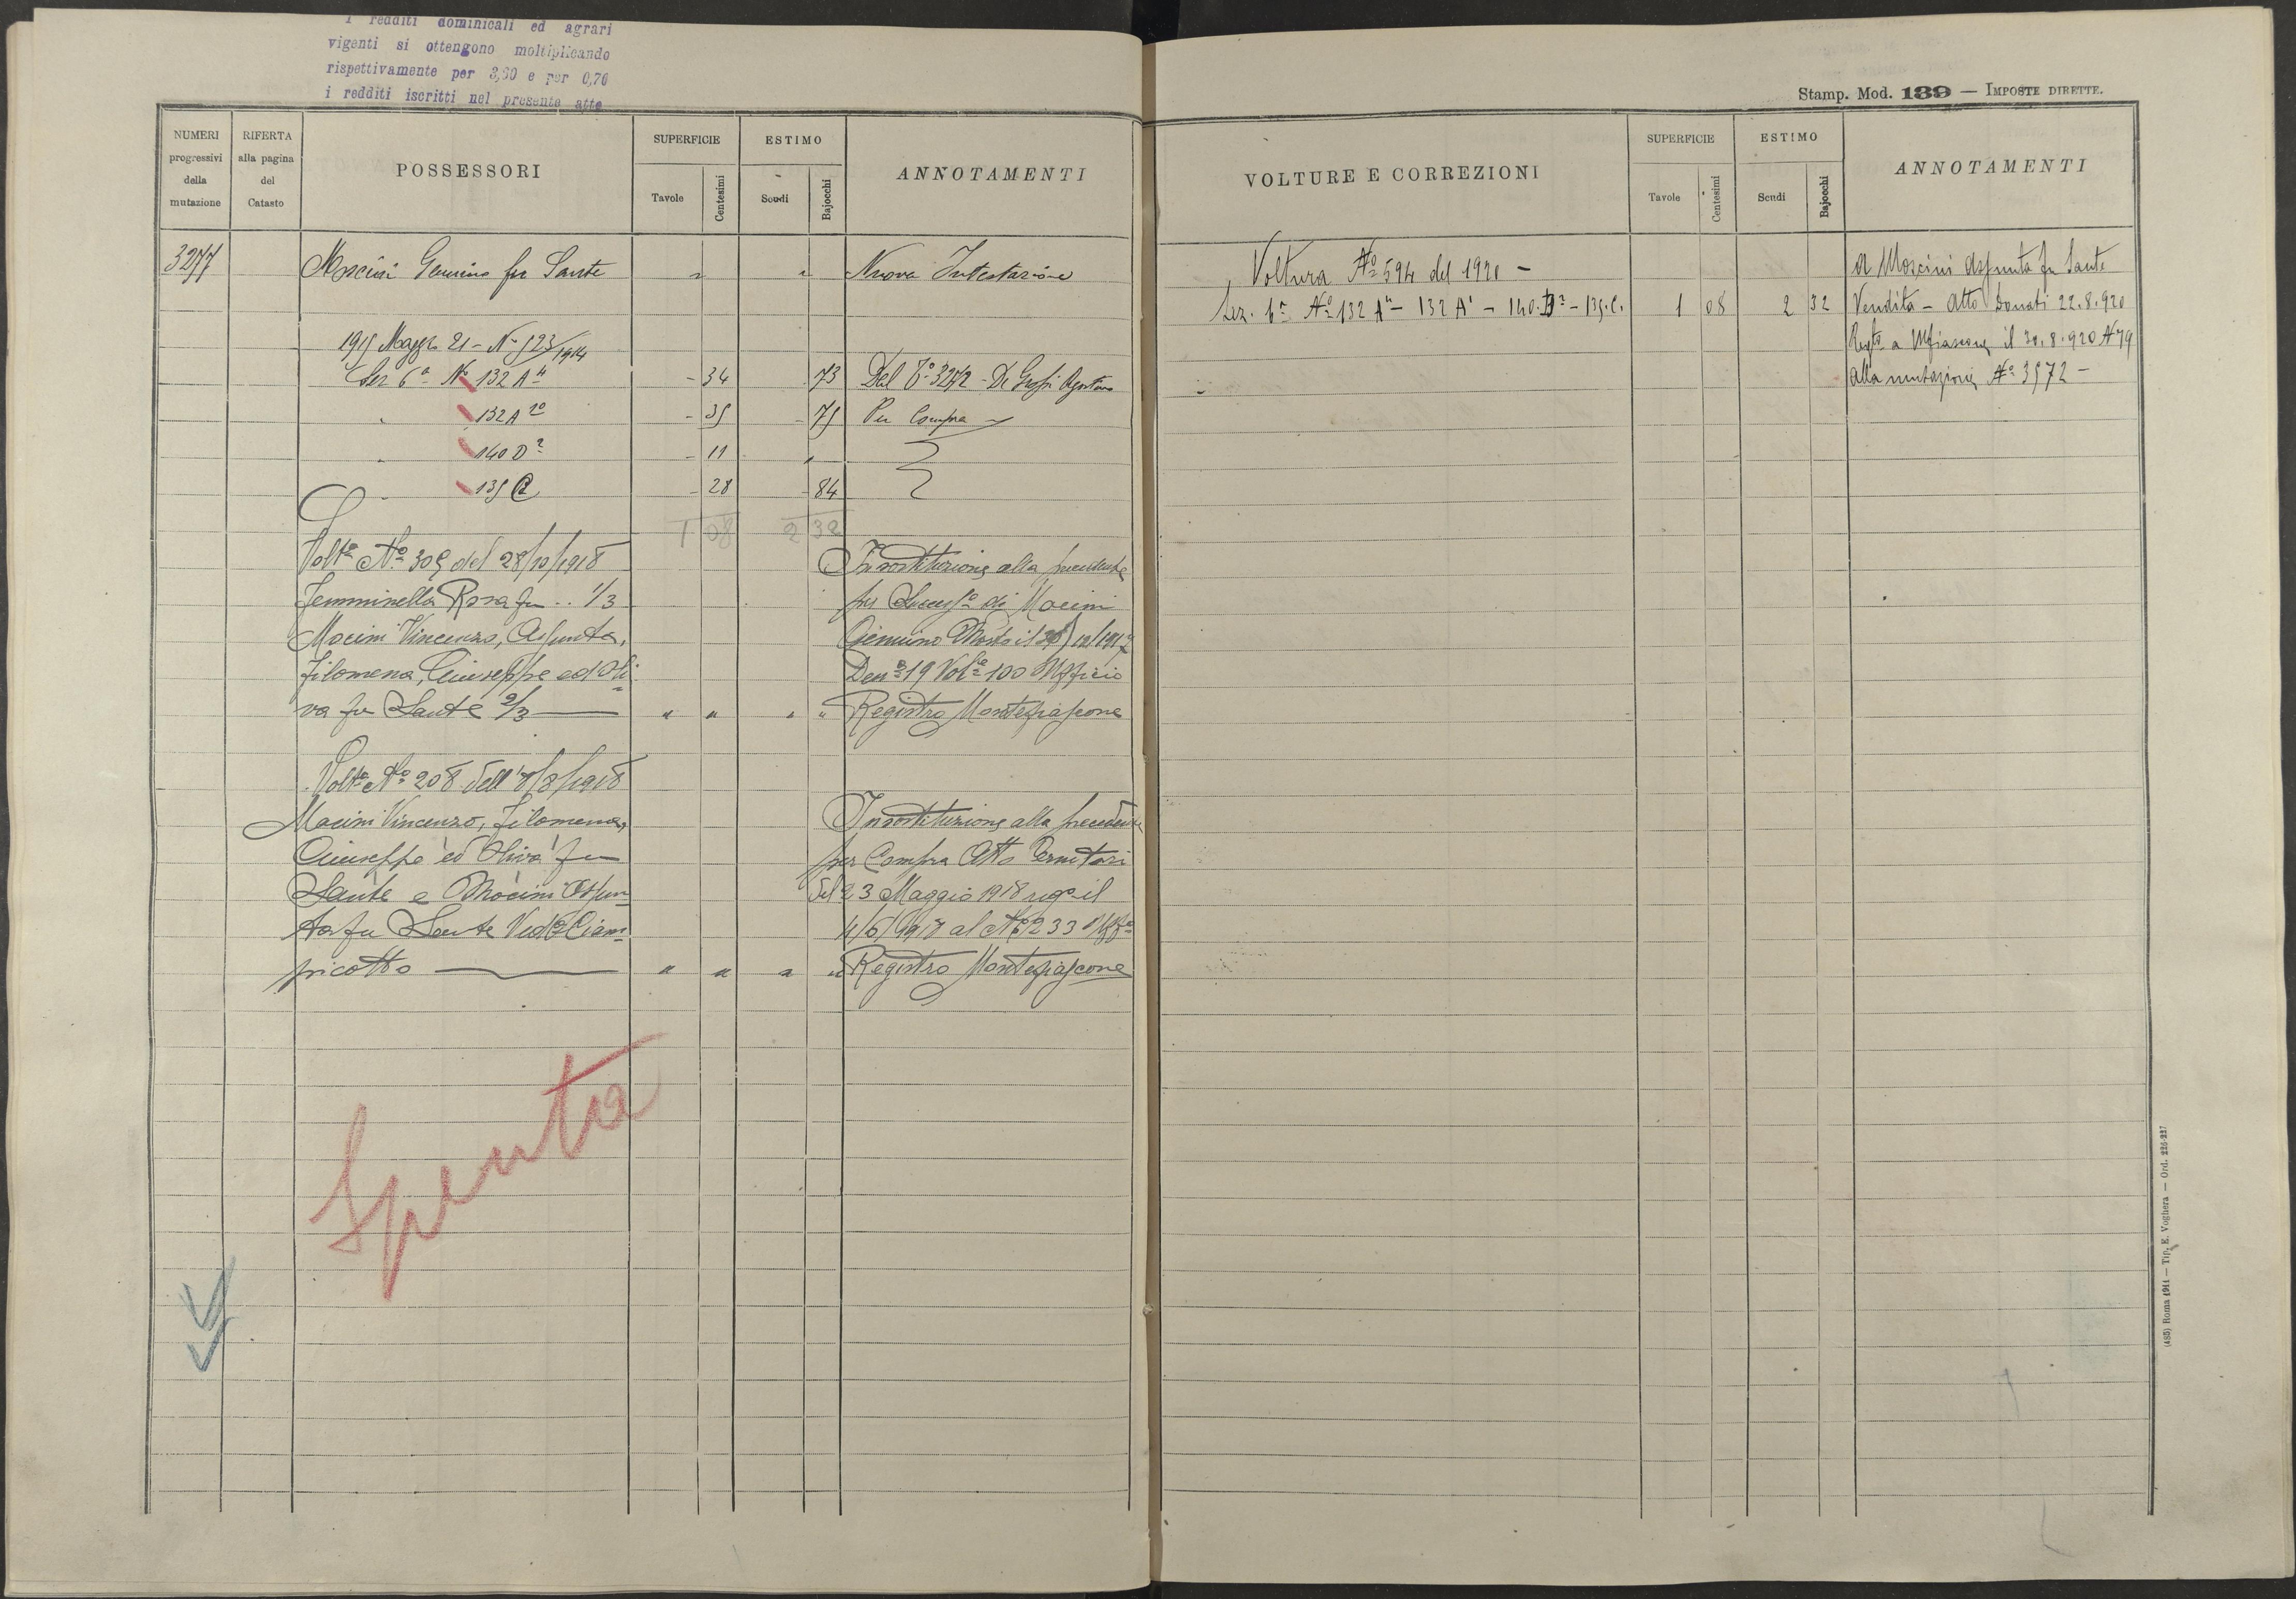 I redditi dominicali ed agrari
vigenti si ottengono moltiplicando
rispettivamente per 3,60 e per 0,70
i redditi iscritti nel presente atto
Stamp. Mod. 139 — IMPOSTE DIRETTE.
NUMERI progressivi della mutazione
RIFERTA alla pagina del Catasto
POSSESSORI
SUPERFICIE
Tavole Centesimi
ESTIMO
Scudi Bajocchi
ANNOTAMENTI
3277 Mocini Gemino fu Sante " " Nuova Intestazione
1915 Maggio 21 - N° 523/1914
Sez 6a N° 132 A" - 34 - 73 Dal N° 3272 - De Grossi Agostino
" 132 A 20 - 35 - 75 Per Compra
" 140 D2 - 11 "
" 135 C - 28 - 84
1 08 2 32
Volta No 305 del 28/10/1918
Femminella Rosa fu .. 1/3
Mocini Vincenzo, Assunta,
Filomena, Giuseppe ed Oli
va fu Sante 2/3 " " " "
In sostituzione alla precedente
per Success.e di Mocini
Gemino Morto il 12/1917
Den.a 19 Vol.e 100 Ufficio
Registro Montefiascone
Volta No 208 dell'8/8/1918
Mocini Vincenzo, Filomena,
Giuseppe ed Oliva fu
Sante e Mocini Assun
ta fu Sante Ved.a Ciam
pricotto " " " "
In sostituzione alla precedente
per Compra Atto
del 23 Maggio 1918 reg.o il
4/6/1918 al No 233 Uff.o
Registro Montefiascone
Spenta
VOLTURE E CORREZIONI
SUPERFICIE
Tavole Centesimi
ESTIMO
Scudi Bajocchi
ANNOTAMENTI
Voltura No 594 del 1920 -
Sez. 6a No 132 A" - 132 A' - 140. D2 - 135. C. 1 08 2 32
A Moscini Assunta fu Sante
Vendita - Atto Donati 22.8.920
Regto a Mfiascone il 30.8.920 N 79
alla mutazione No 3572 -
(485) Roma 1911 — Tip. E. Voghera — Ord. 226-227